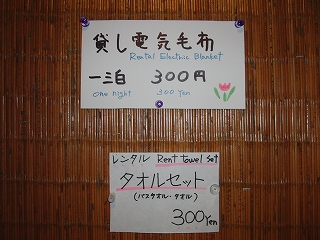 貸し電気毛布
Rental Electric Blanket
一泊 300円
one night 300 Yen
レンタル Rent towel set
タオルセット
(バスタオル・タオル)
300Yen